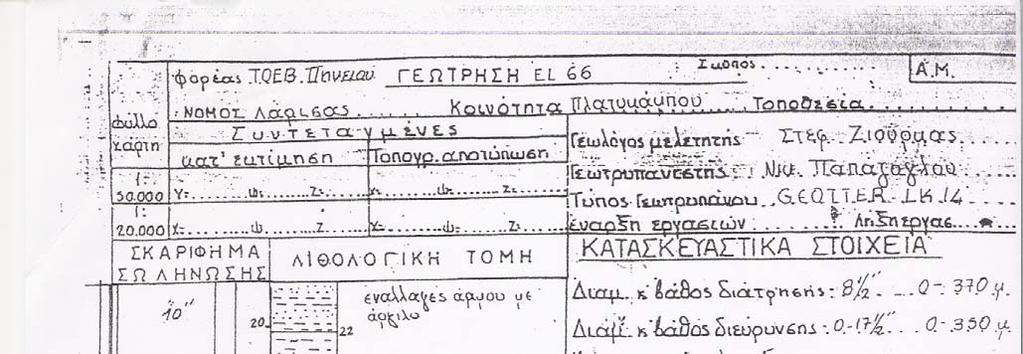 φορέας Τ.Ο.Ε.Β. Πηνειού ΓΕΩΤΡΗΣΗ EL 66 Σκοπός........ Α.Μ.
ΝΟΜΟΣ Λάρισας Κοινότητα Πλατυκάμπου Τοποθεσία..........
φύλλο χάρτη
Συντεταγμένες
Γεωλόγος μελετητής Στεφ. Ζιούρμας
κατ' εκτίμηση Τοπογρ. αποτύπωση
Γεωτρυπανιστής: Νικ. Παπάζογλου
1: 50.000 χ=........ψ=........z=........ χ=........ψ=........z=........
Τύπος Γεωτρυπάνου GEOTTER LK 14
1: 20.000 χ=........ψ=........z........ χ=........ψ=........z........
έναρξη εργασιών ? Λήξη εργασ....
ΣΚΑΡΙΦΗΜΑ ΣΩΛΗΝΩΣΗΣ
ΛΙΘΟΛΟΓΙΚΗ ΤΟΜΗ
ΚΑΤΑΣΚΕΥΑΣΤΙΚΑ ΣΤΟΙΧΕΙΑ
10"
20
22
εναλλαγές άμμου με
άργιλο
Διαμ. κ βάθος διάτρησης: 8½" .. 0-370 μ.
Διάμ. κ βάθος διεύρυνσης: 0-17½" ... 0-350 μ.